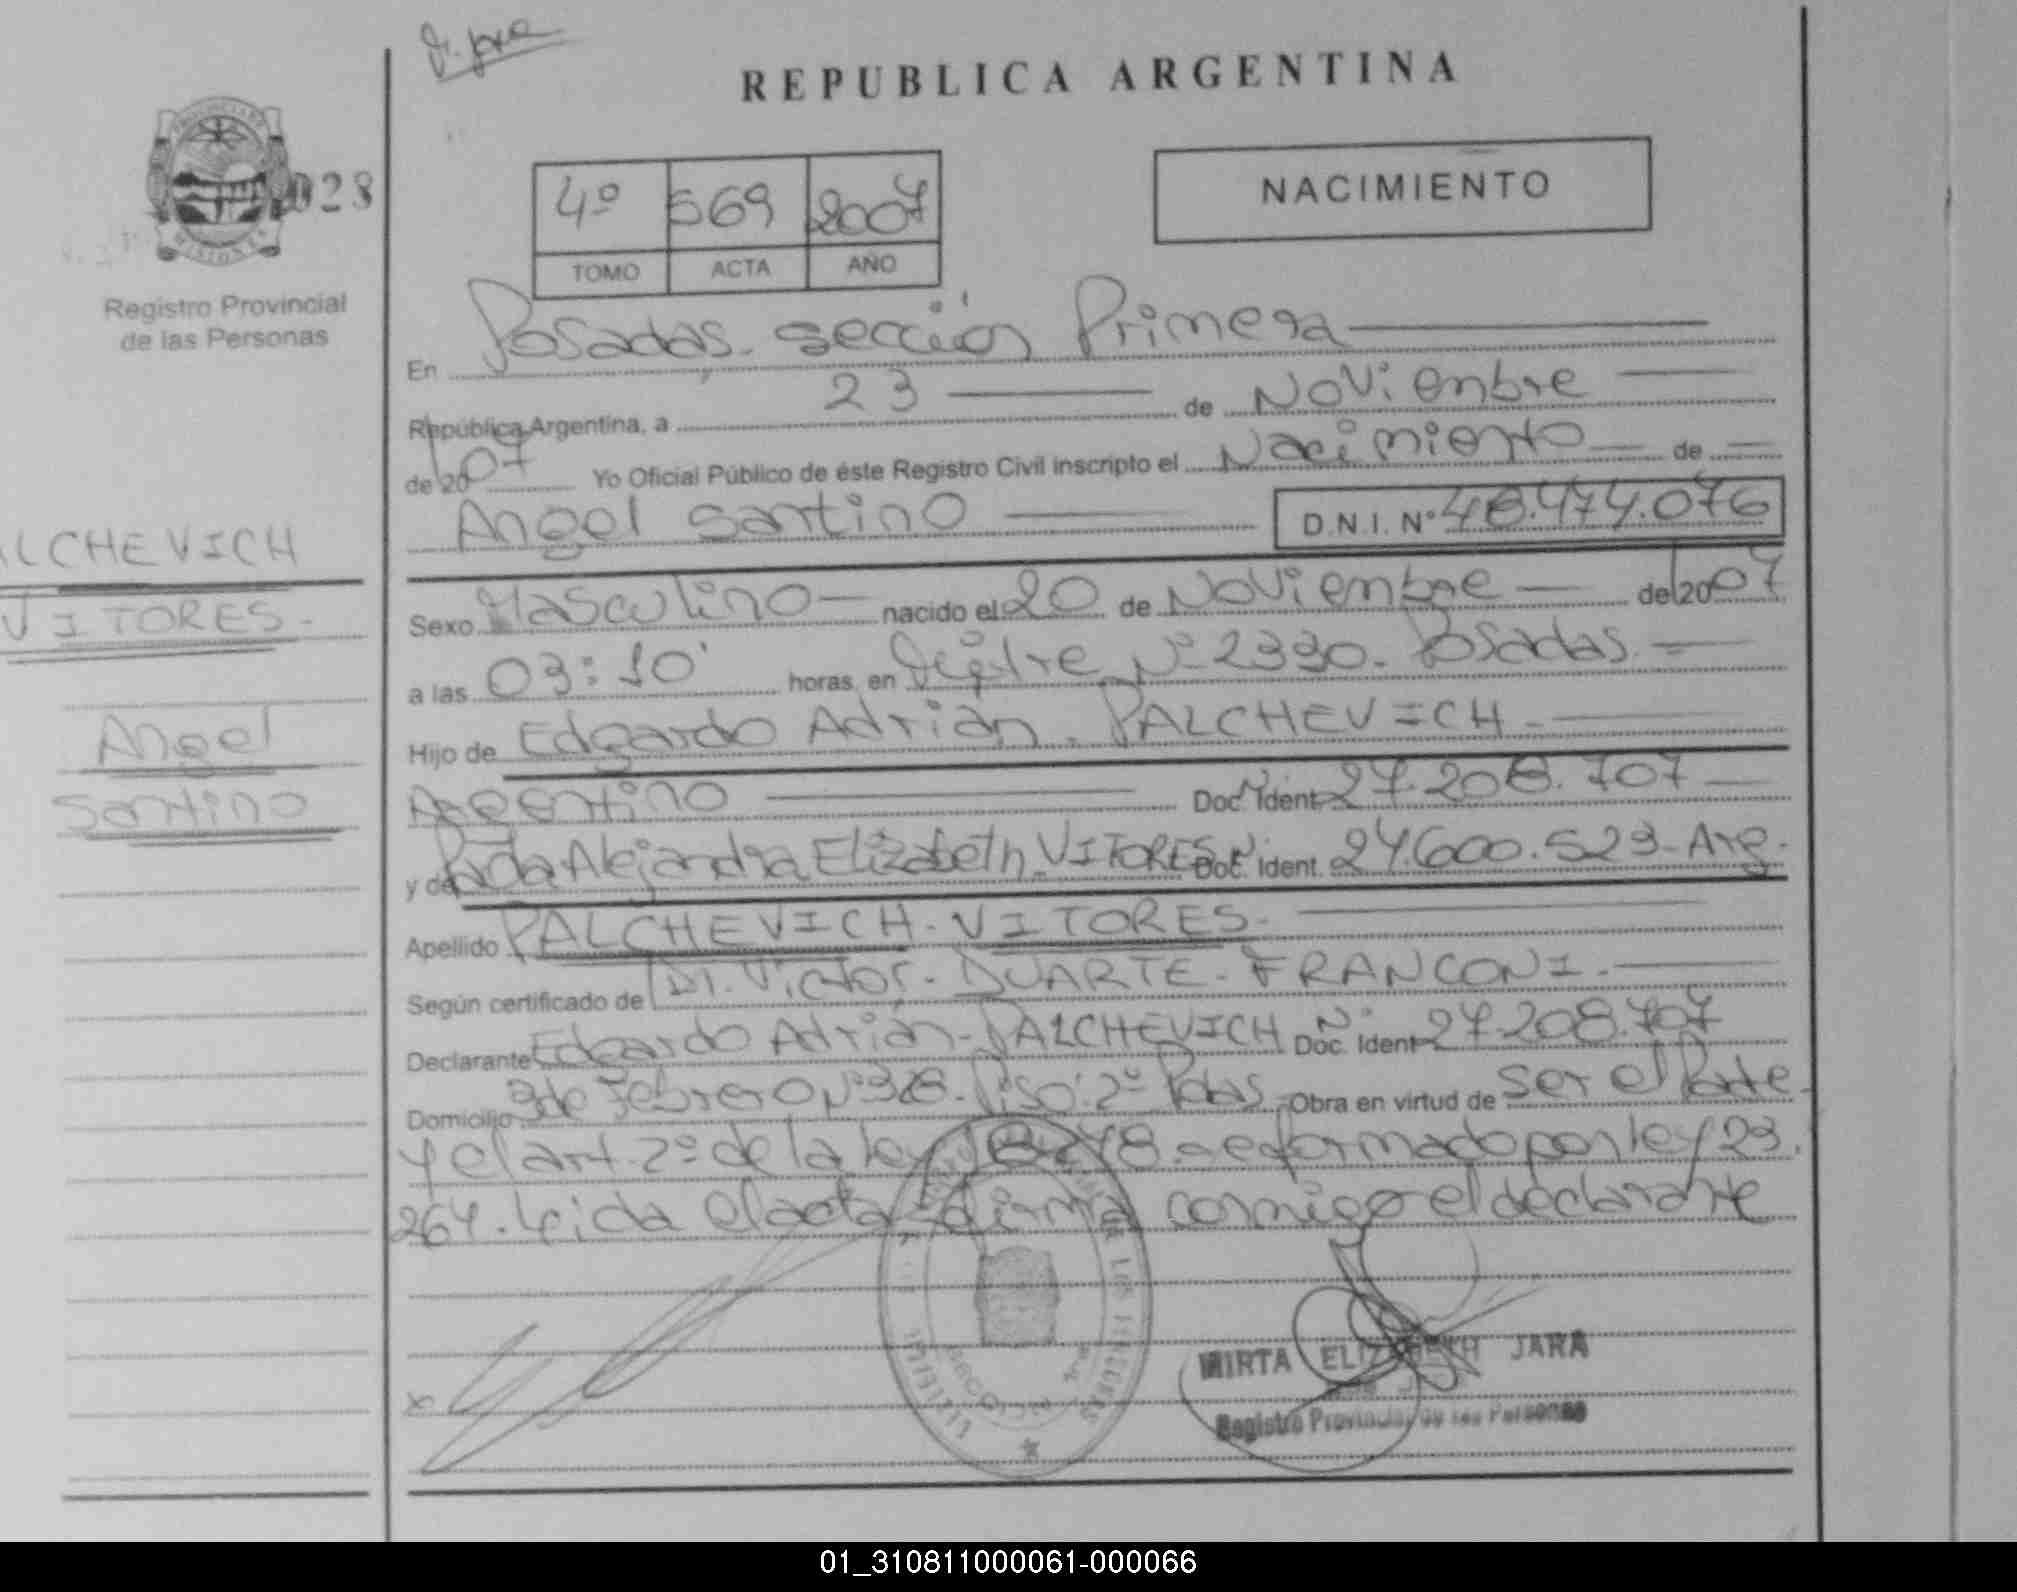 REPUBLICA ARGENTINA
028
4º 569 2007
TOMO ACTA AÑO
NACIMIENTO
PROVINCIA DE MISIONES
Registro Provincial
de las Personas
En Posadas. sección Primera
República Argentina, a 23 de Noviembre
de 2007 Yo Oficial Público de éste Registro Civil inscripto el Nacimiento de
Angel Santino D.N.I. Nº 48.474.076
PALCHEVICH
VITORES.
Angel
Santino
Sexo Masculino nacido el 20 de Noviembre de 2007
a las 03:10' horas, en Nº 2330. Posadas.
Hijo de Edgardo Adrián. PALCHEVICH.
Argentino Doc. Ident. 27.208.707
y de Alejandra Elizabeth. VITORES. Doc. Ident. 24.600.523. Arg.
Apellido PALCHEVICH. VITORES.
Según certificado de Dr. Victor. DUARTE. FRANCONI.
Declarante Edgardo Adrián. PALCHEVICH Doc. Ident. Nº 27.208.707
Domicilio 3 de Febrero Nº 328. Piso: 2º Pdas. Obra en virtud de ser el Padre.
y el art. 2º de la ley 18248. reformado por ley 23.
264. Leida el acta firma conmigo el declarante
MIRTA ELIZABETH JARA
Registro Provincial de las Personas
01_310811000061-000066